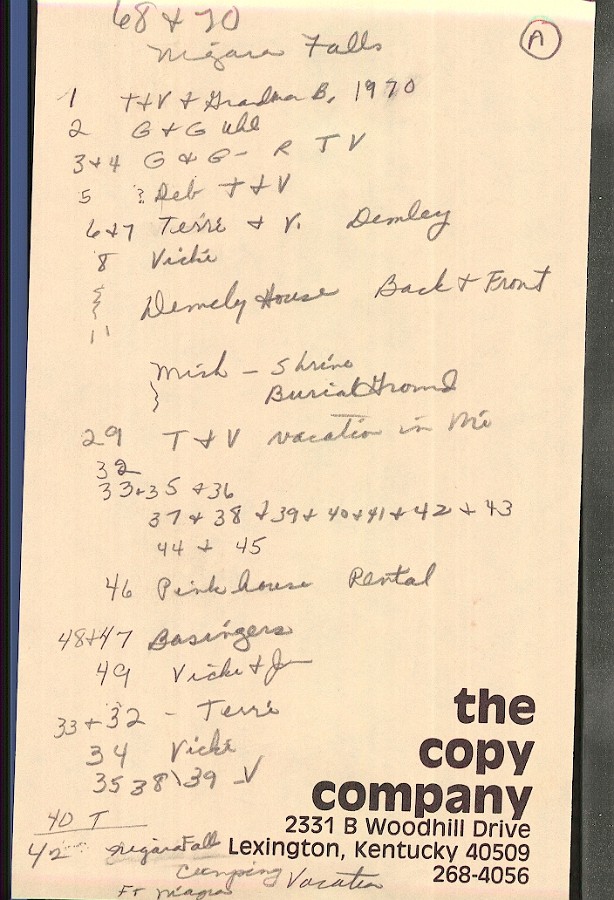 68 & 70
A
Niagara Falls
1 T+V + Grandma B, 1970
2 G + G Uhl
3+4 G & G - R T V
5 } Deb T + V
6+7 Terri + V. Demley
8 Vicki
Demely House Back + Front
11
Mish - Shrine
} Burial Ground
29 T + V vacation in Mi
32
33+35 +36
37 + 38 +39+ 40+41+ 42 + 43
44 + 45
46 Pink house Rental
48+47 Basingers
49 Vicki + J
33 + 32 - Terri
34 Vicki
35 38\39 -V
40 T
42 Niagara Fall
Camping Vacation
Ft Niagra
the
copy
company
2331 B Woodhill Drive
Lexington, Kentucky 40509
268-4056